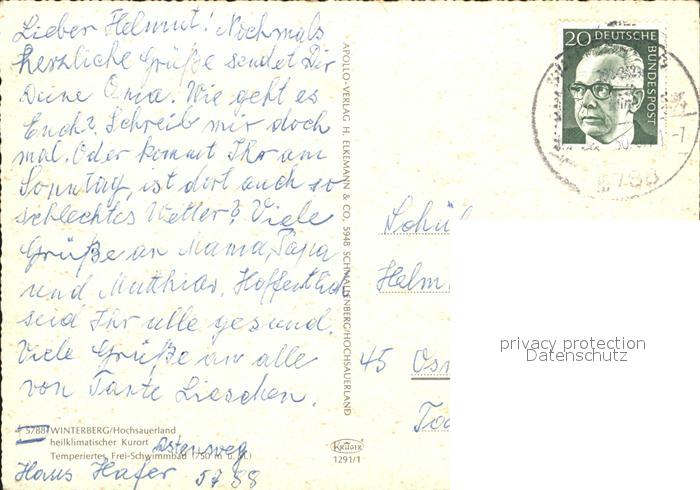 Lieber Helmut! Nochmals
herzliche Grüße sendet Dir
Deine Oma. Wie geht es
Euch? Schreib mir doch
mal. Oder kommt Ihr am
Sonntag, ist dort auch so
schlechtes Wetter? Viele
Grüße an Mama, Papa
und Matthias. Hoffentlich
seid Ihr alle gesund.
Viele Grüße an alle
von Tante Lieschen.
5788 WINTERBERG/Hochsauerland
heilklimatischer Kurort
Temperiertes Frei-Schwimmbad (750 m ü. M.)
Astenweg
Haus Hafer 5788
APOLLO-VERLAG H. ELKEMANN & CO, 5948 SCHMALLENBERG/HOCHSAUERLAND
KRÜGER
1291/1
20 DEUTSCHE
BUNDESPOST
5788
Schül
Helm
45 Osn
privacy protection
Datenschutz